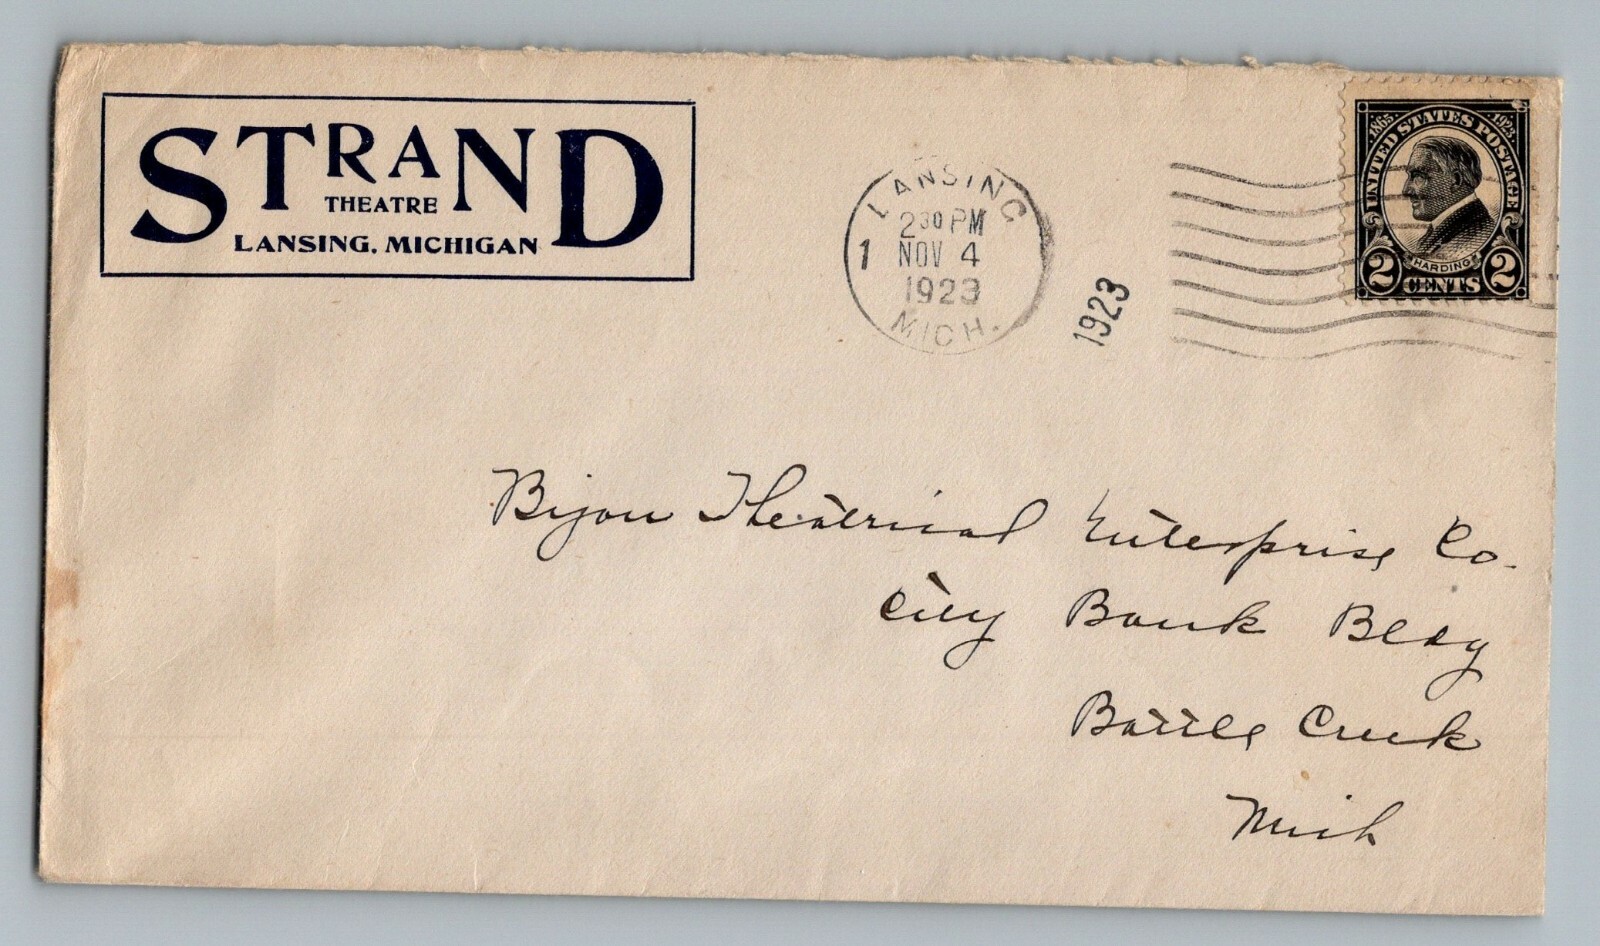 STRAND
THEATRE
LANSING, MICHIGAN
LANSING
2 30 PM
1 NOV 4
1923
MICH.
1923
1865 1923
UNITED STATES POSTAGE
HARDING
2 CENTS 2
Bijou Theatrical Enterprise Co.
City Bank Bldg
Battle Creek
Mich